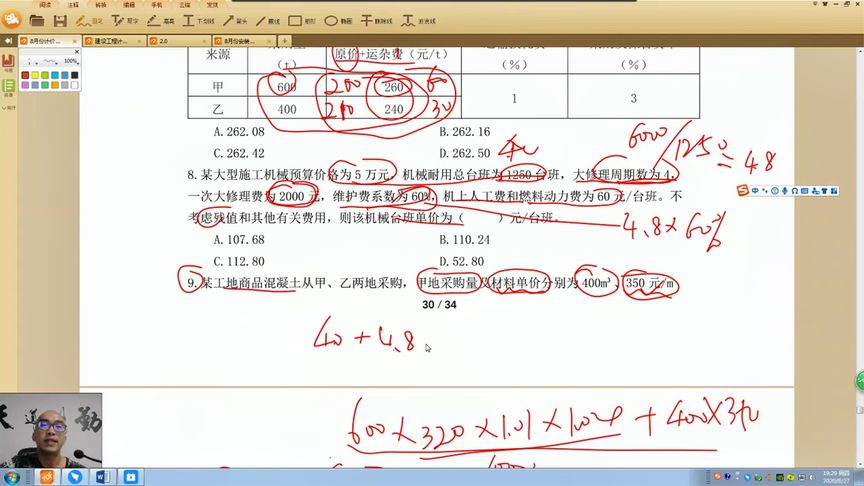 阅读 注释 编辑 手机 云端 发现
画笔 写字 高亮 下划线 箭头 直线 矩形 椭圆 删除线 波浪线
8月份计价... 建设工程计... 2.0 8月份安装...
书签
目录
展开
100%
来源 (t) 原价+运杂费(元/t) (%) (%)
甲 600 260 1 3
乙 400 240
200 60
210 30
A.262.08 B.262.16
C.262.42 D.262.50
40
6000/1250=4.8
8.某大型施工机械预算价格为5万元,机械耐用总台班为1250台班,大修理周期数为4,
一次大修理费为2000元,维护费系数为60%,机上人工费和燃料动力费为60元/台班。不
考虑残值和其他有关费用,则该机械台班单价为( )元/台班。
4.8×60%
A.107.68 B.110.24
C.112.80 D.52.80
9.某工地商品混凝土从甲、乙两地采购,甲地采购量及材料单价分别为400m³、350元/m
30 / 34
40+4.8
600×320×1.01×1.04+400×340
天道 勤
19:29 周四
2020/8/27